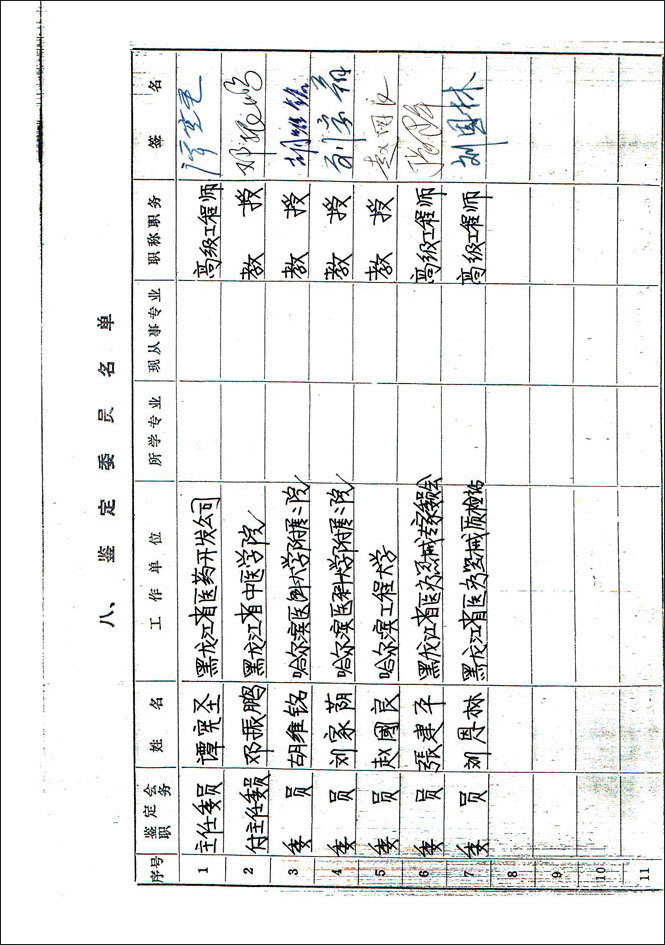 八、鉴定委员名单
序号 鉴定会职务 姓名 工作单位 所学专业 现从事专业 职称职务 签名
1 主任委员 谭宪圣 黑龙江省医药开发公司 高级工程师
2 付主任委员 邓振鹏 黑龙江省中医学院 教授 邓振鹏
3 委员 胡维铭 哈尔滨医科大学附属二院 教授 胡维铭
4 委员 刘家荫 哈尔滨医科大学附属二院 教授
5 委员 赵國良 哈尔滨工程大学 教授
6 委员 張建平 黑龙江省医疗器械专家委员会 高级工程师
7 委员 刘恩林 黑龙江省医疗器械质检站 高级工程师 刘恩林
8
9
10
11